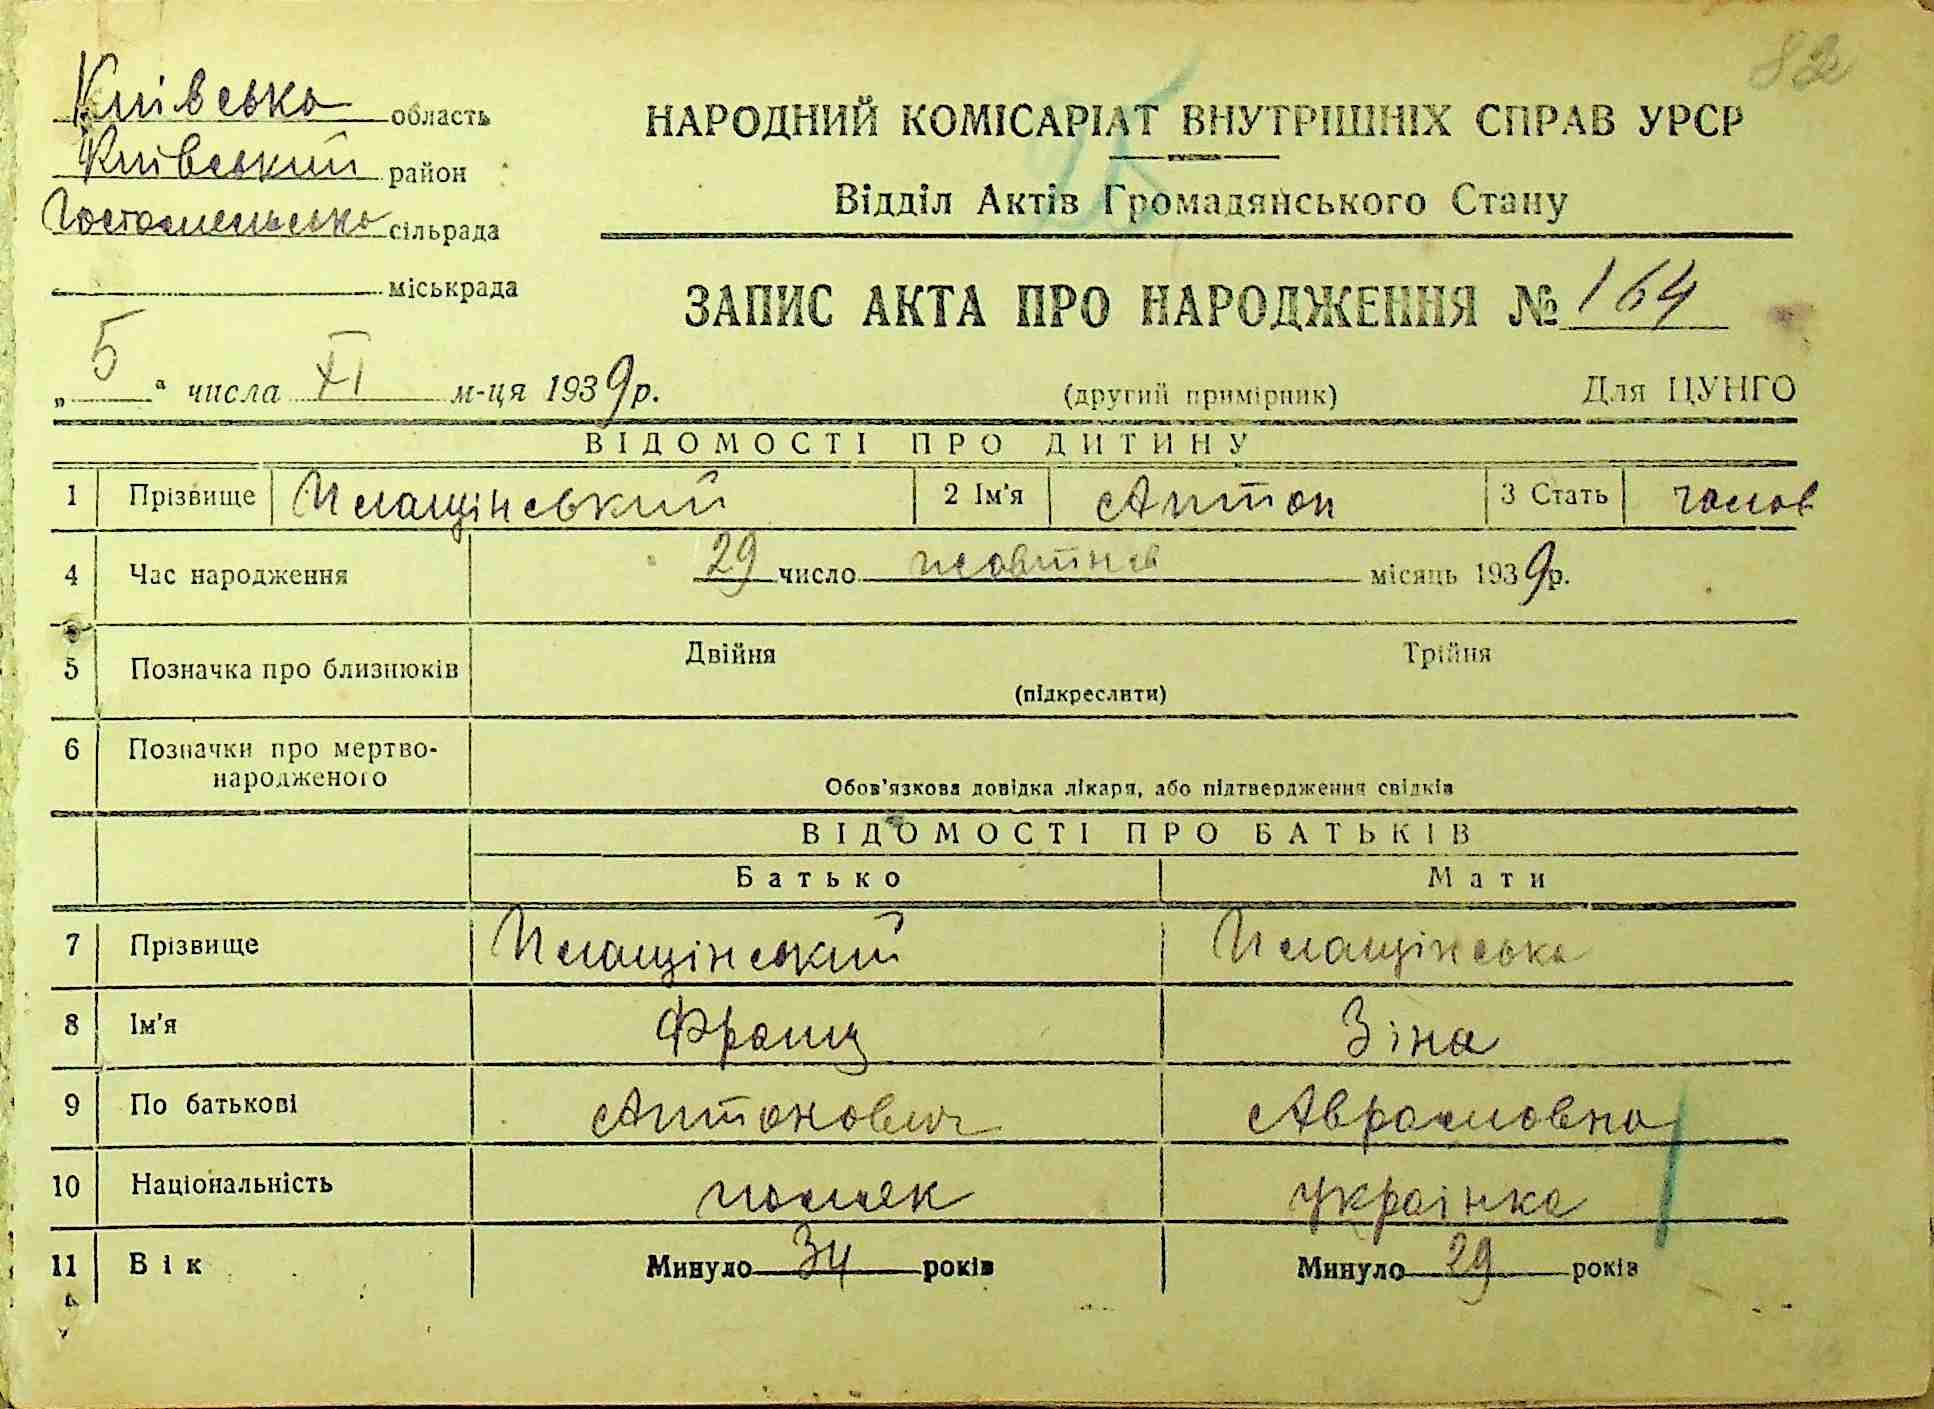 82
Київська область
Київський район
Гостомельська сільрада
міськрада
НАРОДНИЙ КОМІСАРІАТ ВНУТРІШНІХ СПРАВ УРСР
Відділ Актів Громадянського Стану
ЗАПИС АКТА ПРО НАРОДЖЕННЯ № 164
„5“ числа XI м-ця 1939 р.
(другий примірник)
Для ЦУНГО
ВІДОМОСТІ ПРО ДИТИНУ
1 Прізвище Плащінський 2 Ім'я Антон 3 Стать чолов
4 Час народження 29 число жовтня місяць 1939 р.
5 Позначка про близнюків Двійня Трійня
(підкреслити)
6 Позначки про мертво-
народженого
Обов'язкова довідка лікаря, або підтвердження свідків
ВІДОМОСТІ ПРО БАТЬКІВ
Батько Мати
7 Прізвище Плащінский Плащінська
8 Ім'я Франц Зіна
9 По батькові Антонович Аврамовна
10 Національність поляк українка
11 Вік Минуло 34 років Минуло 29 років